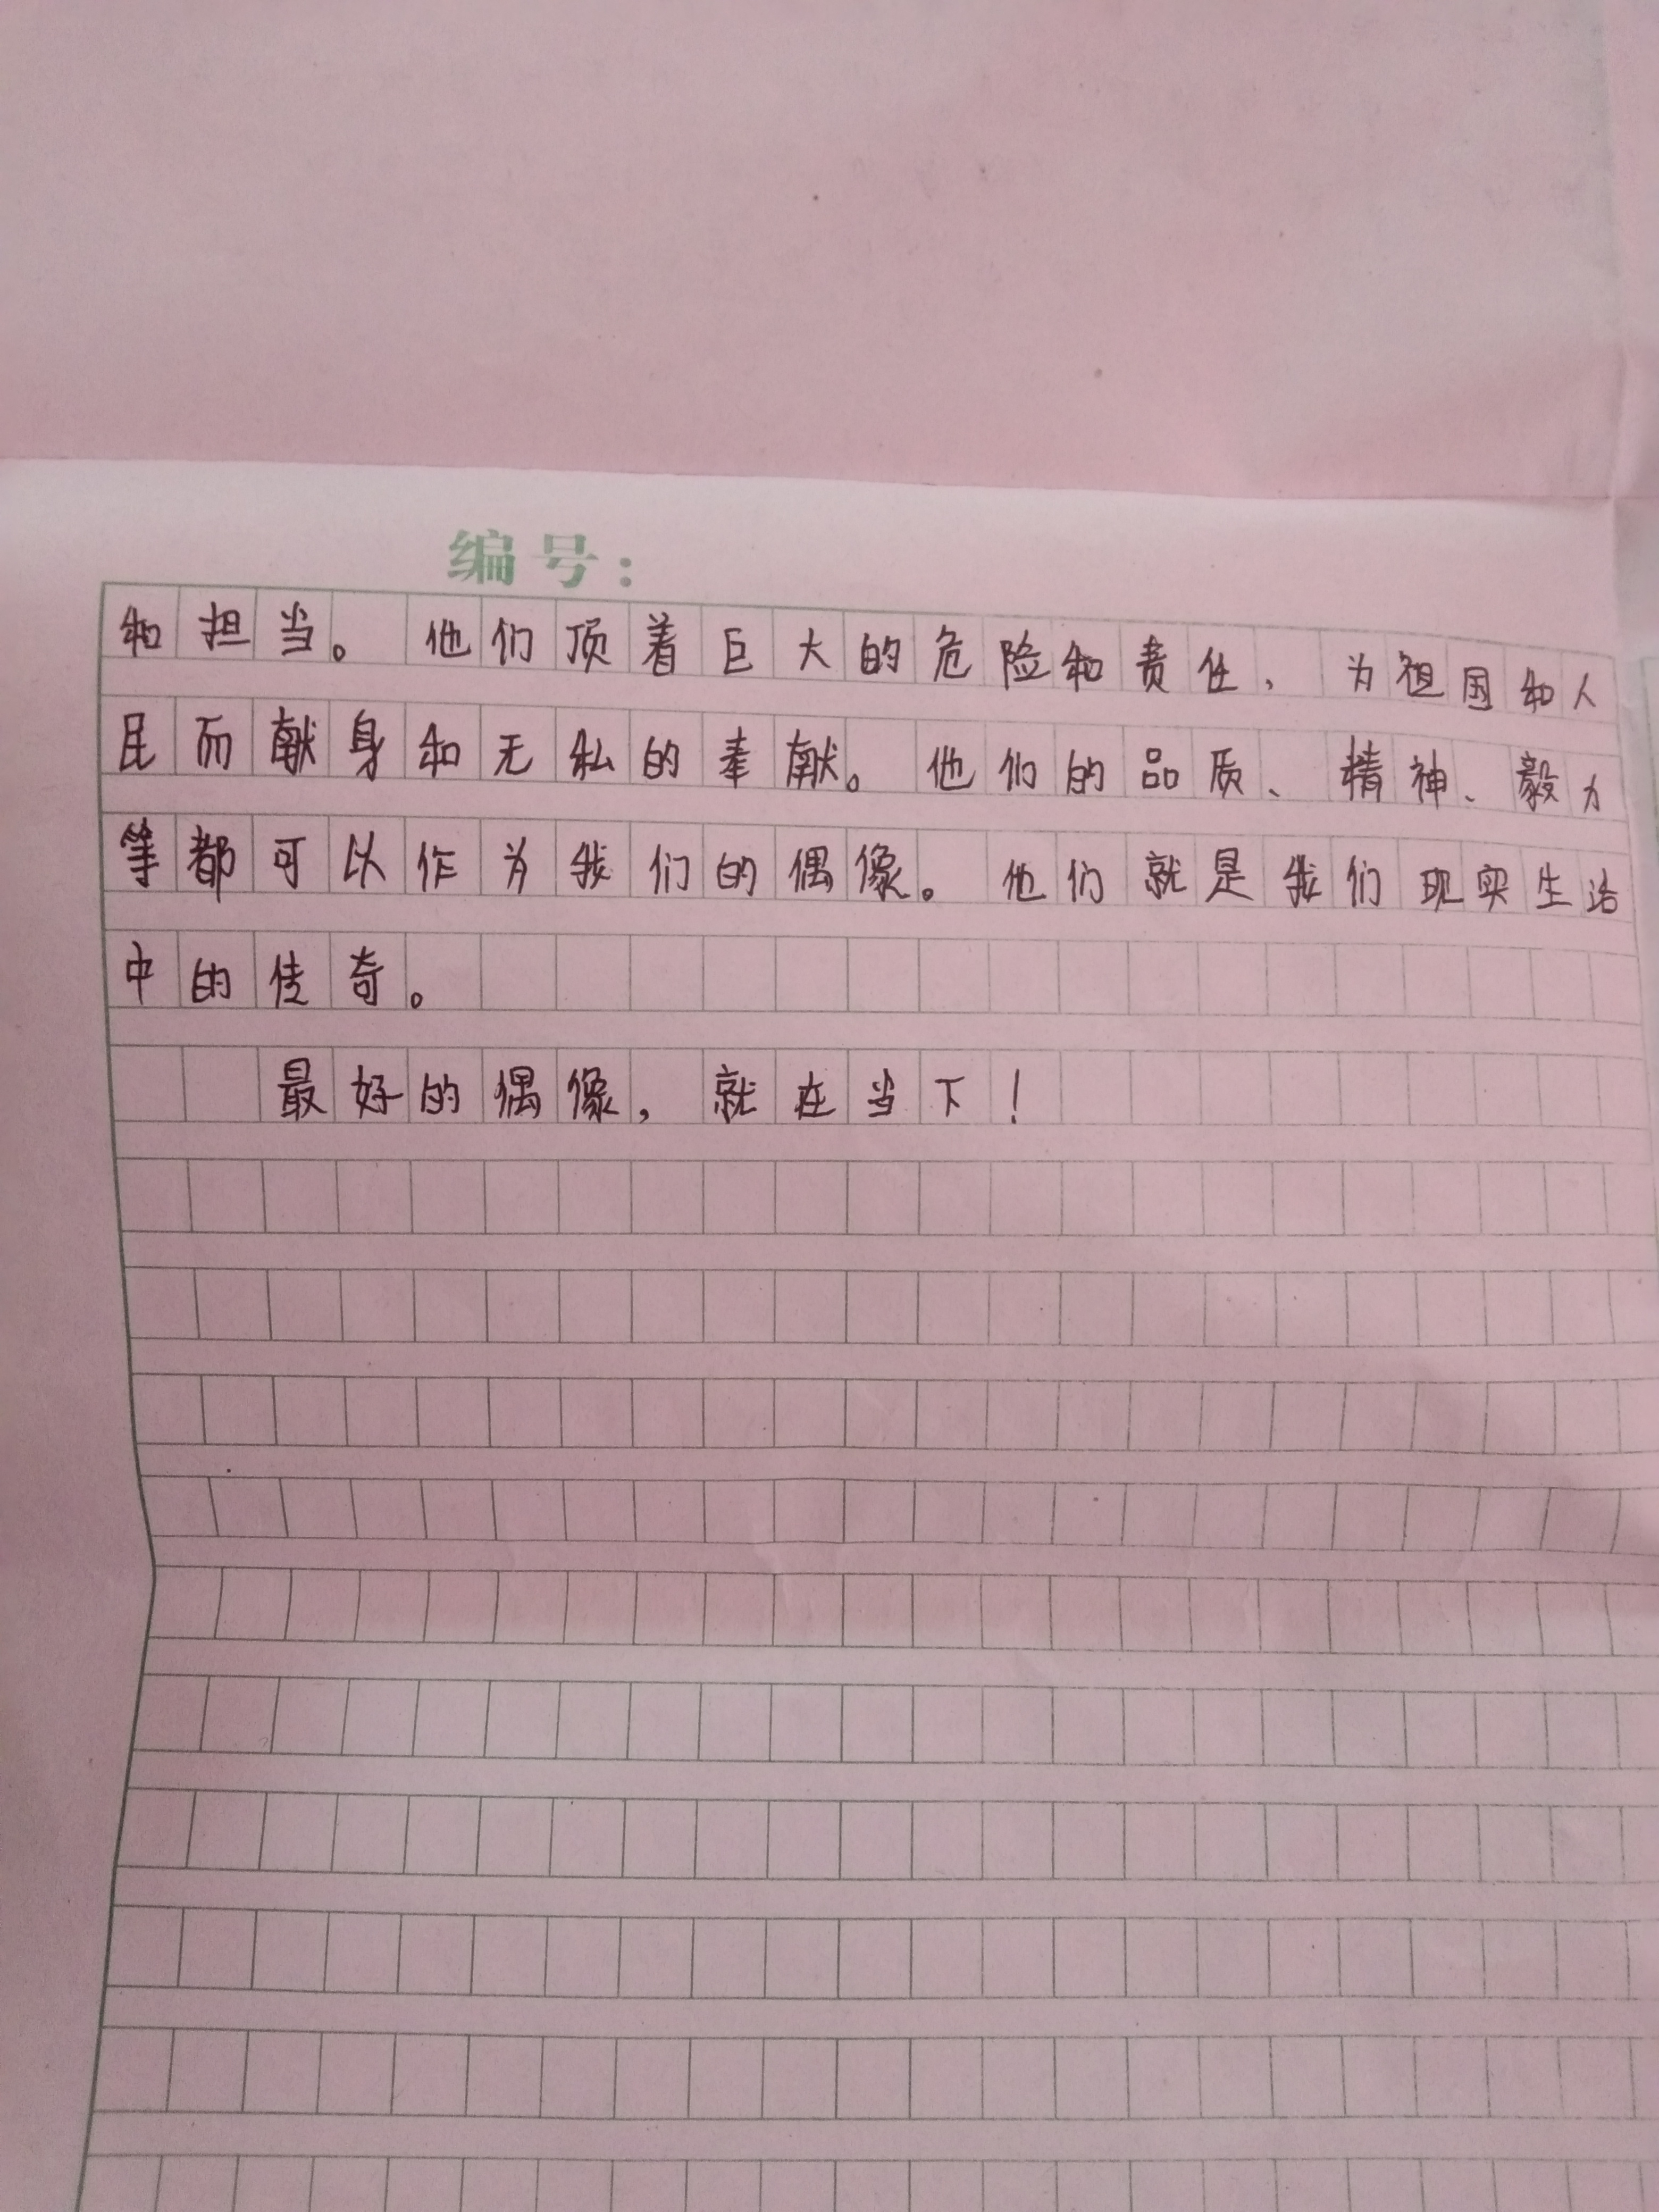 编号:
和担当。他们顶着巨大的危险和责任、为祖国和人
民而献身和无私的奉献。他们的品质、精神、毅力
等都可以作为我们的偶像。他们就是我们现实生活
中的传奇。
最好的偶像,就在当下!